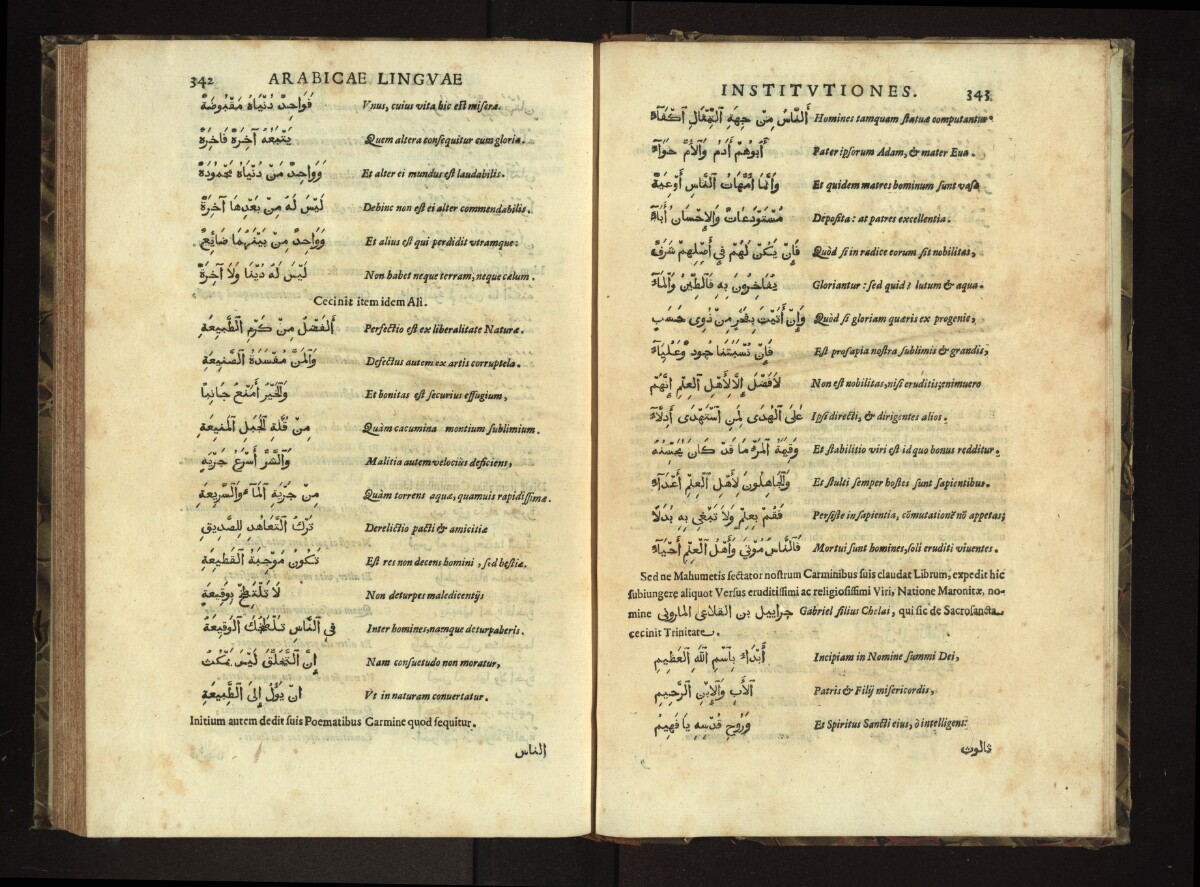 342 ARABICAE LINGVAE
فَوَاحِدٌ دُنْيَاهُ مَقْبُوضَةٌ Vnus, cuius vita hic est misera.
يَتْبَعُهُ آخِرَةٌ فَاخِرَةٌ Quem altera consequitur cum gloria.
وَوَاحِدٌ مَنْ دُنْيَاهُ مَحْمُودَةٌ Et alter ei mundus est laudabilis.
لَيْسَ لَهُ مِنْ بَعْدِهَا آخِرَةٌ Dehinc non est ei alter commendabilis.
وَوَاحِدٌ مِنْ بَيْنَهُمَا ضَائِعٌ Et alius est qui perdidit vtramque:
لَيْسَ لَهُ دُنْيَا وَلَا آخِرَةٌ Non habet neque terram, neque cælum.
Cecinit item idem Ali.
أَلْفَضْلُ مِنْ كَرَمِ ٱلطَّبِيعَةِ Perfectio est ex liberalitate Naturæ.
وَٱلْمَنُّ مَفْسَدَةُ ٱلصَّنِيعَةِ Defectus autem ex artis corruptela.
وَٱلْخَيْرُ أَمْنَعُ جَانِبًا Et bonitas est securius effugium,
مِنْ قُلَّةِ ٱلْجَبَلِ ٱلْمَنِيعَةِ Quàm cacumina montium sublimium.
وَٱلشَّرُّ أَسْرَعُ جَرْيَةٍ Malitia autem velocius deficiens,
مِنْ جَرْيَةِ ٱلْمَاءِ وَٱلسَّرِيعَةِ Quàm torrens aquæ, quamuis rapidissimæ.
تَرْكُ ٱلتَّعَاهُدِ لِلصَّدِيقِ Derelictio pacti & amicitiæ
تَكُونُ مَوْجِبَةُ ٱلْقَطِيعَةِ Est res non decens homini, sed bestiæ.
لَا تَلْتَطِخْ بِوَقِيعَةٍ Non deturpes maledicentijs
فِي ٱلنَّاسِ تَلْطَخُكَ ٱلْوَقِيعَةُ Inter homines, namque deturpaberis.
إِنَّ ٱلتَّخَلُّقَ لَيْسَ يَمْكُثُ Nam consuetudo non moratur,
انْ يَؤُلُ إِلَى ٱلطَّبِيعَةِ Vt in naturam conuertatur.
Initium autem dedit suis Poematibus Carmine quod sequitur.
الناس
INSTITVTIONES. 343
أَلنَّاسُ مِنْ جِهَةِ ٱلتِّمْثَالِ أَكْفَاءُ Homines tamquam statuæ computantur
أَبُوهُمْ أَدُمْ وَٱلْأُمُّ حَوَّاءُ Pater ipsorum Adam, & mater Eua.
وَأَنَّمَا أُمَّهَاتُ ٱلنَّاسِ أَوْعِيَةٌ Et quidem matres hominum sunt vasa
مُسْتَوْدَعَاتٌ وَٱلْإِحْسَانِ أَبَاءُ Deposita: at patres excellentia.
فَإِنْ يَكُنْ لَهُمْ فِي أَصْلِهِمْ شَرَفٌ Quòd si in radice eorum sit nobilitas,
يُفَاخِرُونَ بِهِ فَٱلطِّينُ وَٱلْمَاءُ Gloriantur: sed quid? lutum & aqua.
وَإِنْ أَتَيْتَ بِفَخْرٍ مِنْ ذَوِى حَسَبٍ Quòd si gloriam quæris ex progenie,
فَإِنَّ نُسْبَتَنَا جُودٌ وَعُلْيَاءُ Est prosapia nostra sublimis & grandis,
لَافَضْلَ إِلَّا لِأَهْلِ ٱلْعِلْمِ إِنَّهُمْ Non est nobilitas, nisi eruditis; enimuero
عَلَى ٱلْهُدَى لِمَنِ ٱسْتَهْدَى أَدِلَّاءُ Ipsi directi, & dirigentes alios.
وَقِيمَةُ ٱلْمَرْءِ مَا قَدْ كَانَ يُحْسِنُهُ Et stabilitio viri est id quo bonus redditur.
وَٱلْجَاهِلُونَ لِأَهْلِ ٱلْعِلْمِ أَعْدَاءُ Et stulti semper hostes sunt sapientibus.
فَقُمْ بِعِلْمٍ وَلَا تَبْغَى بِهِ بَدَلًا Persiste in sapientia, cōmutationē nō appetas;
فَٱلنَّاسُ مَوْتَى وَأَهْلُ ٱلْعِلْمِ أَحْيَاءُ Mortui sunt homines, soli eruditi viuentes.
Sed ne Mahumetis sectator nostrum Carminibus suis claudat Librum, expedit hic
subiungere aliquot Versus eruditissimi ac religiosissimi Viri, Natione Maronitæ, no-
mine جبراييل بن القلاعي الماروني Gabriel filius Chelai, qui sic de Sacrosancta
cecinit Trinitate.
أَبْدَاءُ بِٱسْمِ ٱللّٰهِ ٱلْعَظِيمِ Incipiam in Nomine summi Dei,
ٱلْأَبِ وَٱلْإِبْنِ ٱلرَّحِيمِ Patris & Filij misericordis,
وَرُوحِ قُدْسِهِ يَا فَهِيمُ Et Spiritus Sancti eius, ò intelligens:
ثالوث